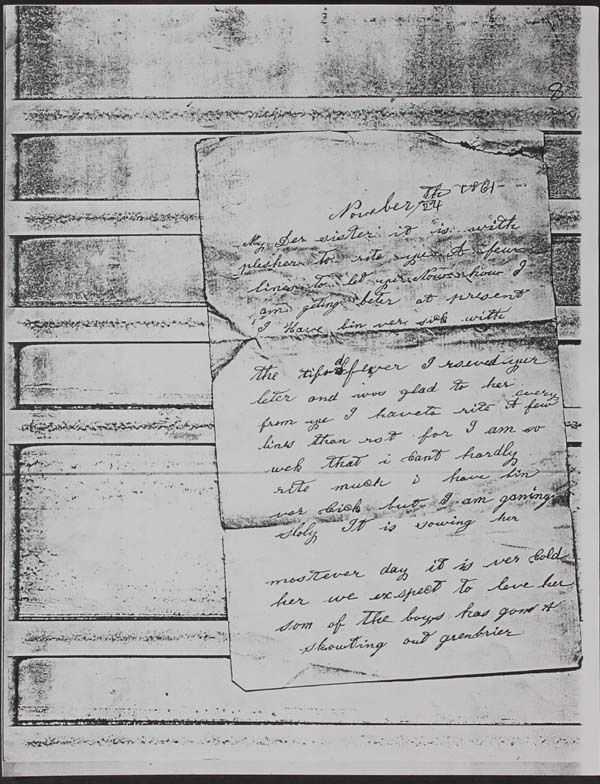 8
November 24th 1861
My Der sister it is with
plesher to rite yu A few
lines to let yu Now how I
am geting beter at present
I Have bin ver sick with
the tifod fever I rseved yur
leter and was glad to her
from ye I have to rite A few every
links than rot for I am so
wek that i cant hardly
rite much i have bin
ver Sick but I am ganing
Sloly It is sowing her
mostever day it is ver Cold
her we expect to leve her
som of the boys has gon A
skowting out grenbrier